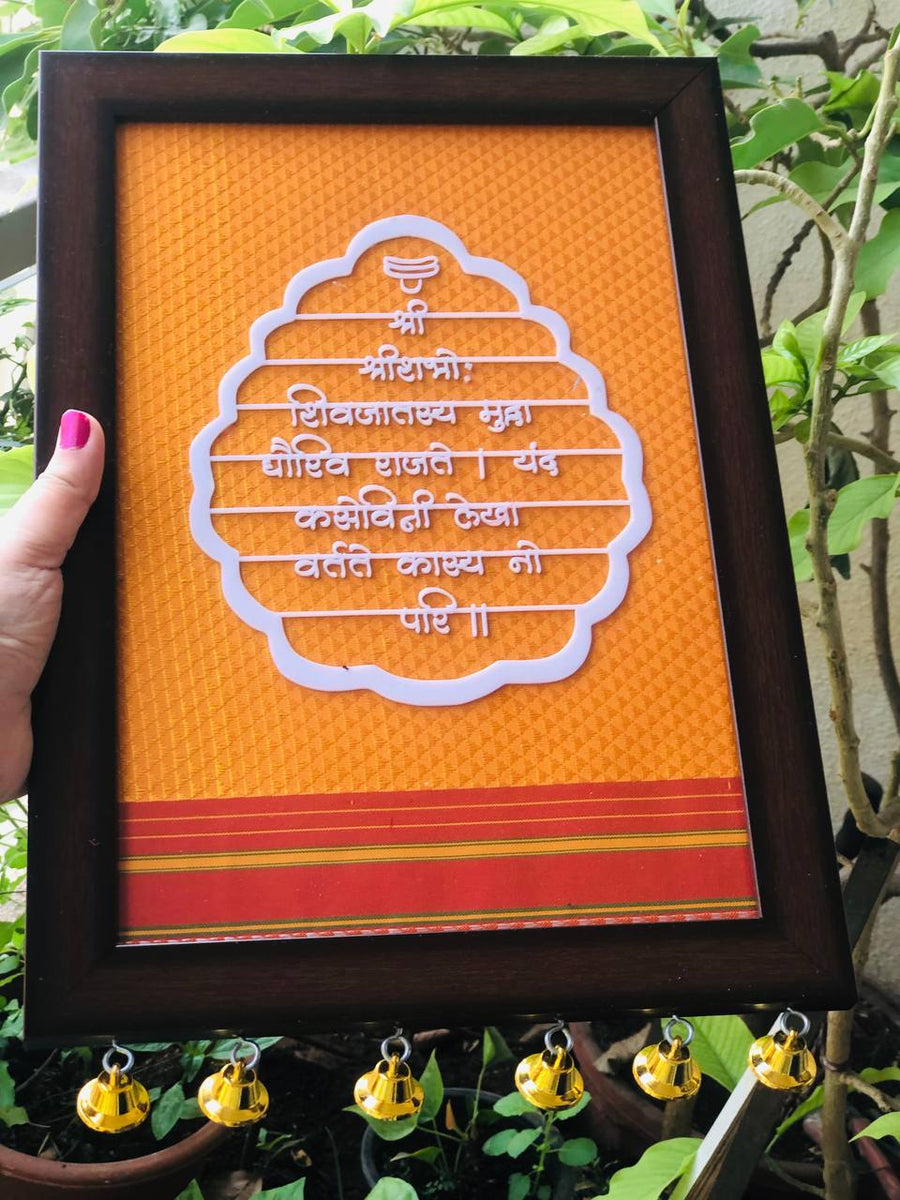 श्री
श्रीशम्भो:
शिवजातस्य मुद्रा
द्यौरिव राजते । यंद
कसेविनी लेखा
वर्तते कास्य नो
परि ॥